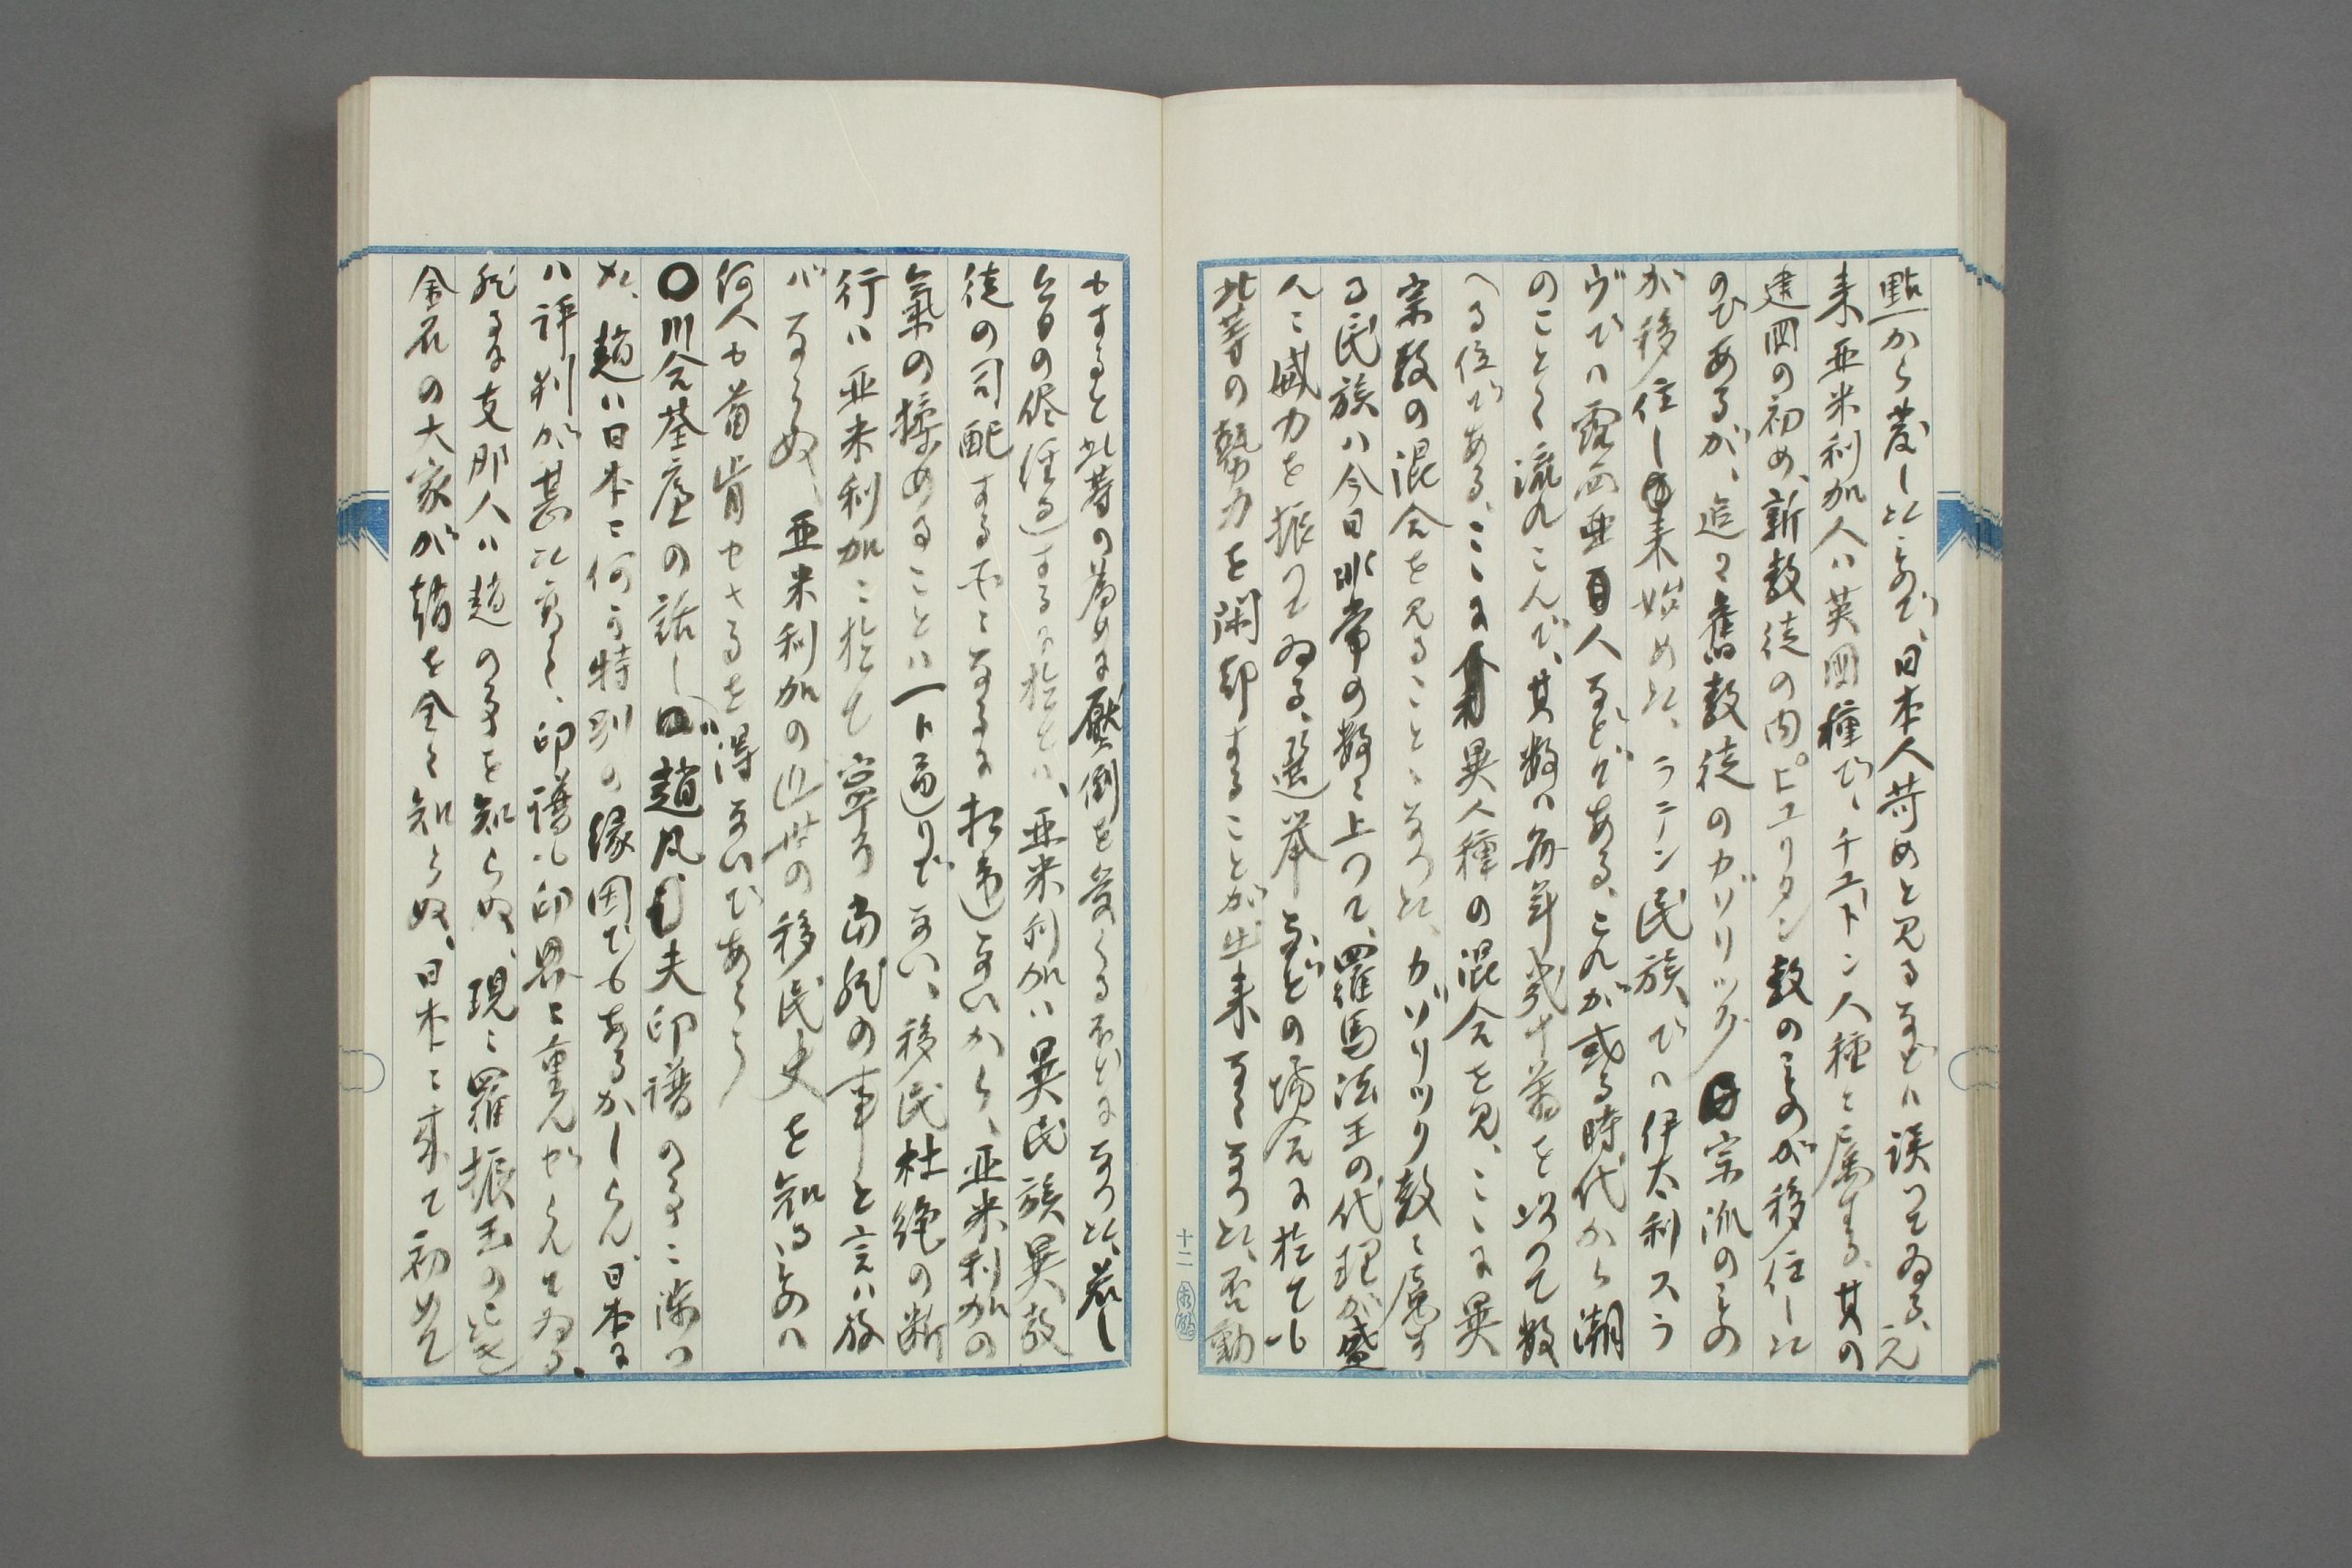 點から発したもので、日本人苛めと見るなどハ誤つてゐる、元
来亜米利加人ハ英国種で、チュートン人種と属する、其の
建国の初め、新教徒の内ピユリタン教のものが移住した
のであるが、追々舊教徒のカゾリック宗派のもの
が移住し来始めた、ラテン民族でハ伊太利スラ
ヴでハ露西亜人などがある、これが或る時代から潮
のことく流れこんで、其数ハ毎年幾十萬を以つて数
へる位である、ここに異人種の混合を見、ここに異
宗教の混合を見ることゝなつた、カゾリツク教ニ属す
る民族ハ今日非常の数ニ上つて、羅馬法王の代理が盛
んニ威力を振つてゐる、選挙などの場合に於ても
此等の勢力を閑却することが出来なくなつた、否動
もすると此等の為めに壓倒を受くる不やうになつた、若し
今日の侭経過するに於てハ、亜米利加ハ異民族異教
徒の司配する所となるに相違ないから、亜米利加の
氣の揉めることハ一ト通りでない、移民杜絶の断
行ハ亜米利加ニ於て寧ろ当然の事と言ハね
バならぬ、亜米利加の近世の移民史を知るものハ
何人も首肯せさるを得ないであらう
〇川合荃廬の話しが趙凡夫印譜の事ニ渉つ
た、趙ハ日本ニ何か特別の縁因でもあるかしらん、日本に
ハ評判が甚た高く、印譜も印界ニ重んぜられてゐる、
然るに支那人ハ趙の事を知らぬ、現ニ羅振玉の如き
金石の大家が趙を全く知らぬ、日本ニ来て初めて
十二